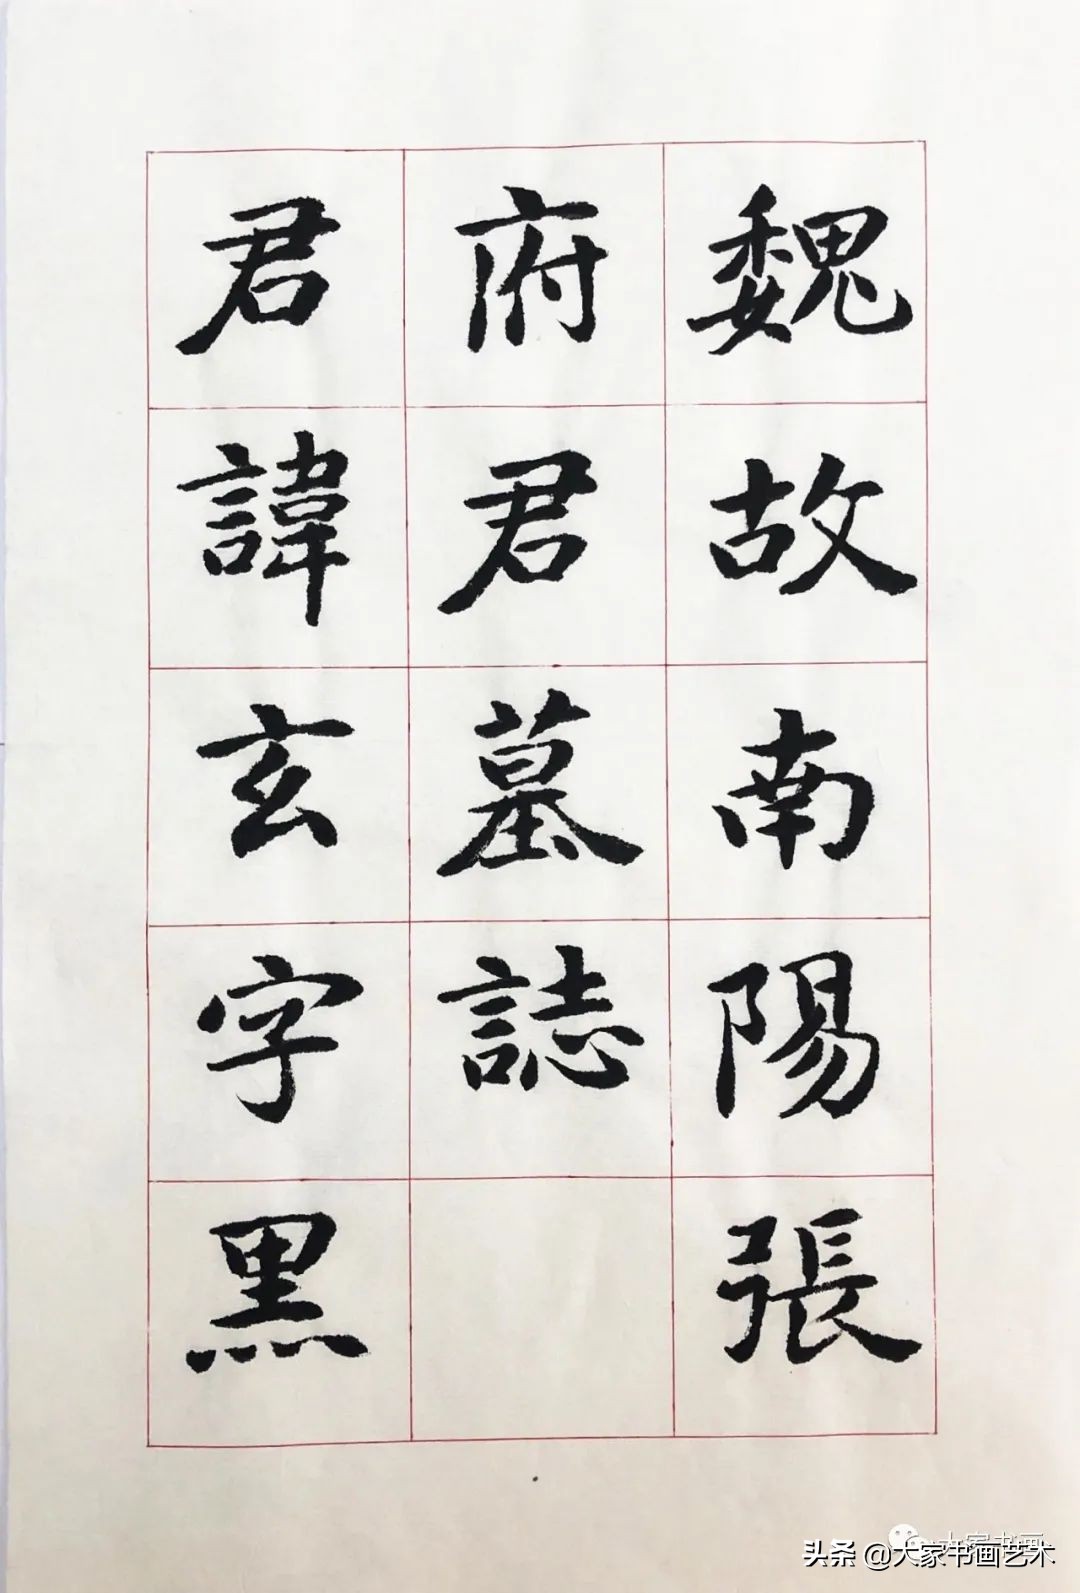 魏故南陽張
府君墓誌
君諱玄字黑
大家书画
头条 @大家书画艺术